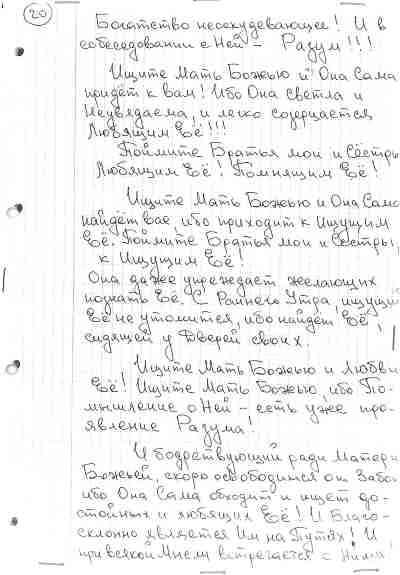 20
Богатство неоскудевающее! И в
собеседовании с Ней – Разум!!!
Ищите Мать Божью и Она Сама
придёт к вам! Ибо Она светла и
Неувядаема, и легко созерцается
Любящим Её!!!
Поймите Братья мои и Сёстры
Любящим Её! Помнящим Её!
Ищите Мать Божью и Она Сама
найдёт вас, ибо приходит к Ищущим
Её. Поймите Братья мои и Сёстры,
к Ищущим Её!
Она даже упреждает желающих
познать Её. С Раннего Утра ищущие
Её не утомится, ибо найдёт Её,
сидящей у Дверей своих.
Ищите Мать Божью и Любви
Её! Ищите Мать Божью, ибо По-
мышление о Ней – есть уже про-
явление Разума!
И бодрствующий ради Матери
Божьей, скоро освободится от Забот
ибо Она Сама обходит и ищет до-
стойных и любящих Её! И Благо-
склонно является Им на Путях! И
при всякой Мысли встречается с Ними!